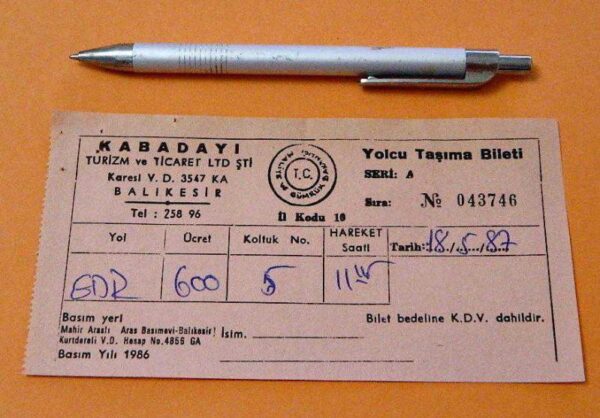 KABADAYI
TURİZM ve TİCARET LTD ŞTİ
Karesi V. D. 3547 KA
BALIKESİR
Tel : 258 96
T.C.
MALİYE ve GÜMRÜK BAKANLIĞI
İl Kodu 10
Yolcu Taşıma Bileti
SERİ: A
Sıra: № 043746
Yol Ücret Koltuk No. HAREKET Saati Tarih: 18/5/87
EDR 600 5 11
Basım yeri
Mahir Araslı Aras Basımevi-Balıkesir
Kurtdereli V.D. Hesap No.4856 GA
Basım Yılı 1986
İsim.
Bilet bedeline K.D.V. dahildir.